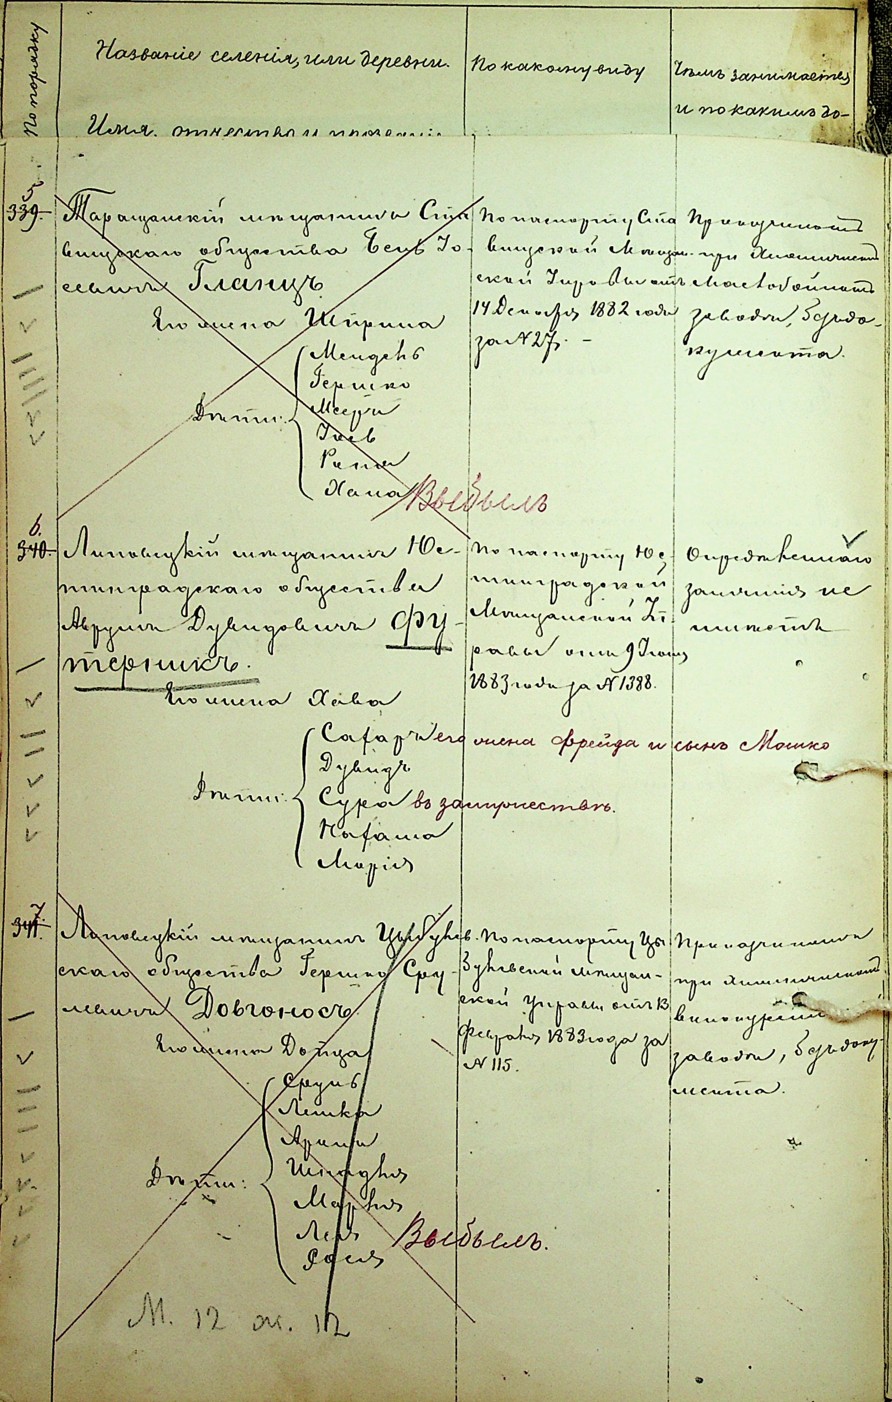 По порядку
Названіе селенія, или деревни.
Имя, отчество и прозваніе
По какому виду
Чѣмъ занимается
и по какимъ до-
5
339.
Таращанскій мѣщанинъ Ста
вищскаго общества Бень Іо-
селевичъ Гланцъ
Его жена Шпринца
Дѣти:
Мендель
Гершко
Мееръ
Іось
Хана
Выбылъ
По паспорту Ста
вищской Мѣщан-
ской Управы отъ
14 Декабря 1882 года
за № 27. -
при
заводѣ, безъ до-
кумента.
6.
340.
Липовецкій мѣщанинъ Юс-
тинградскаго общества
Аврумъ Дувидовичъ Фу-
терникъ.
Его жена Хава
Дѣти:
его жена Фрейда и сынъ Мошко
Дувидъ
Сура въ замужествѣ.
Марія
По паспорту Юс-
тинградской
Мѣщанской Уп-
равы отъ 9 Іюня
1883 года за № 1388.
Опредѣленнаго
занятія не
имѣетъ
7.
341.
Липовецкій мѣщанинъ Цыбулев-
скаго общества Гершко Сру-
левичъ Довгоносъ.
Его жена
Дѣти:
Сруль
Лейка
Марья
Лея
Выбылъ.
По паспорту Цы
булевской мѣщан-
ской управы отъ 13
февраля 1883 года за
№ 115.
при
винокурен
заводѣ, безъ доку-
мента.
М. 12 ж. 12